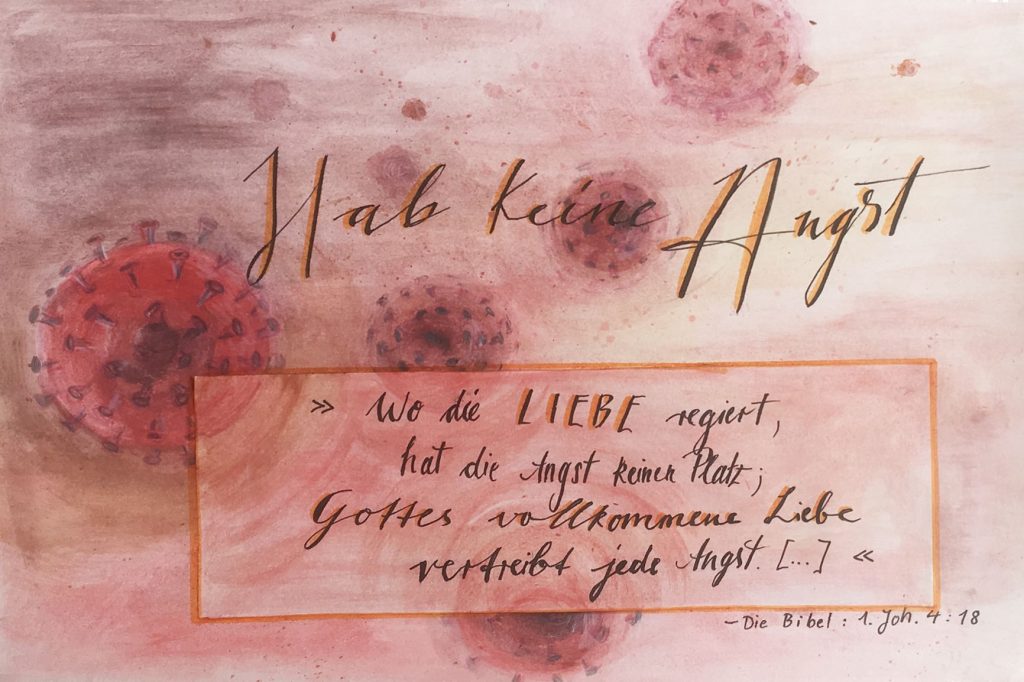 Hab keine Angst
» Wo die LIEBE regiert,
hat die Angst keinen Platz;
Gottes vollkommene Liebe
vertreibt jede Angst. [...] «
– Die Bibel : 1. Joh. 4 : 18